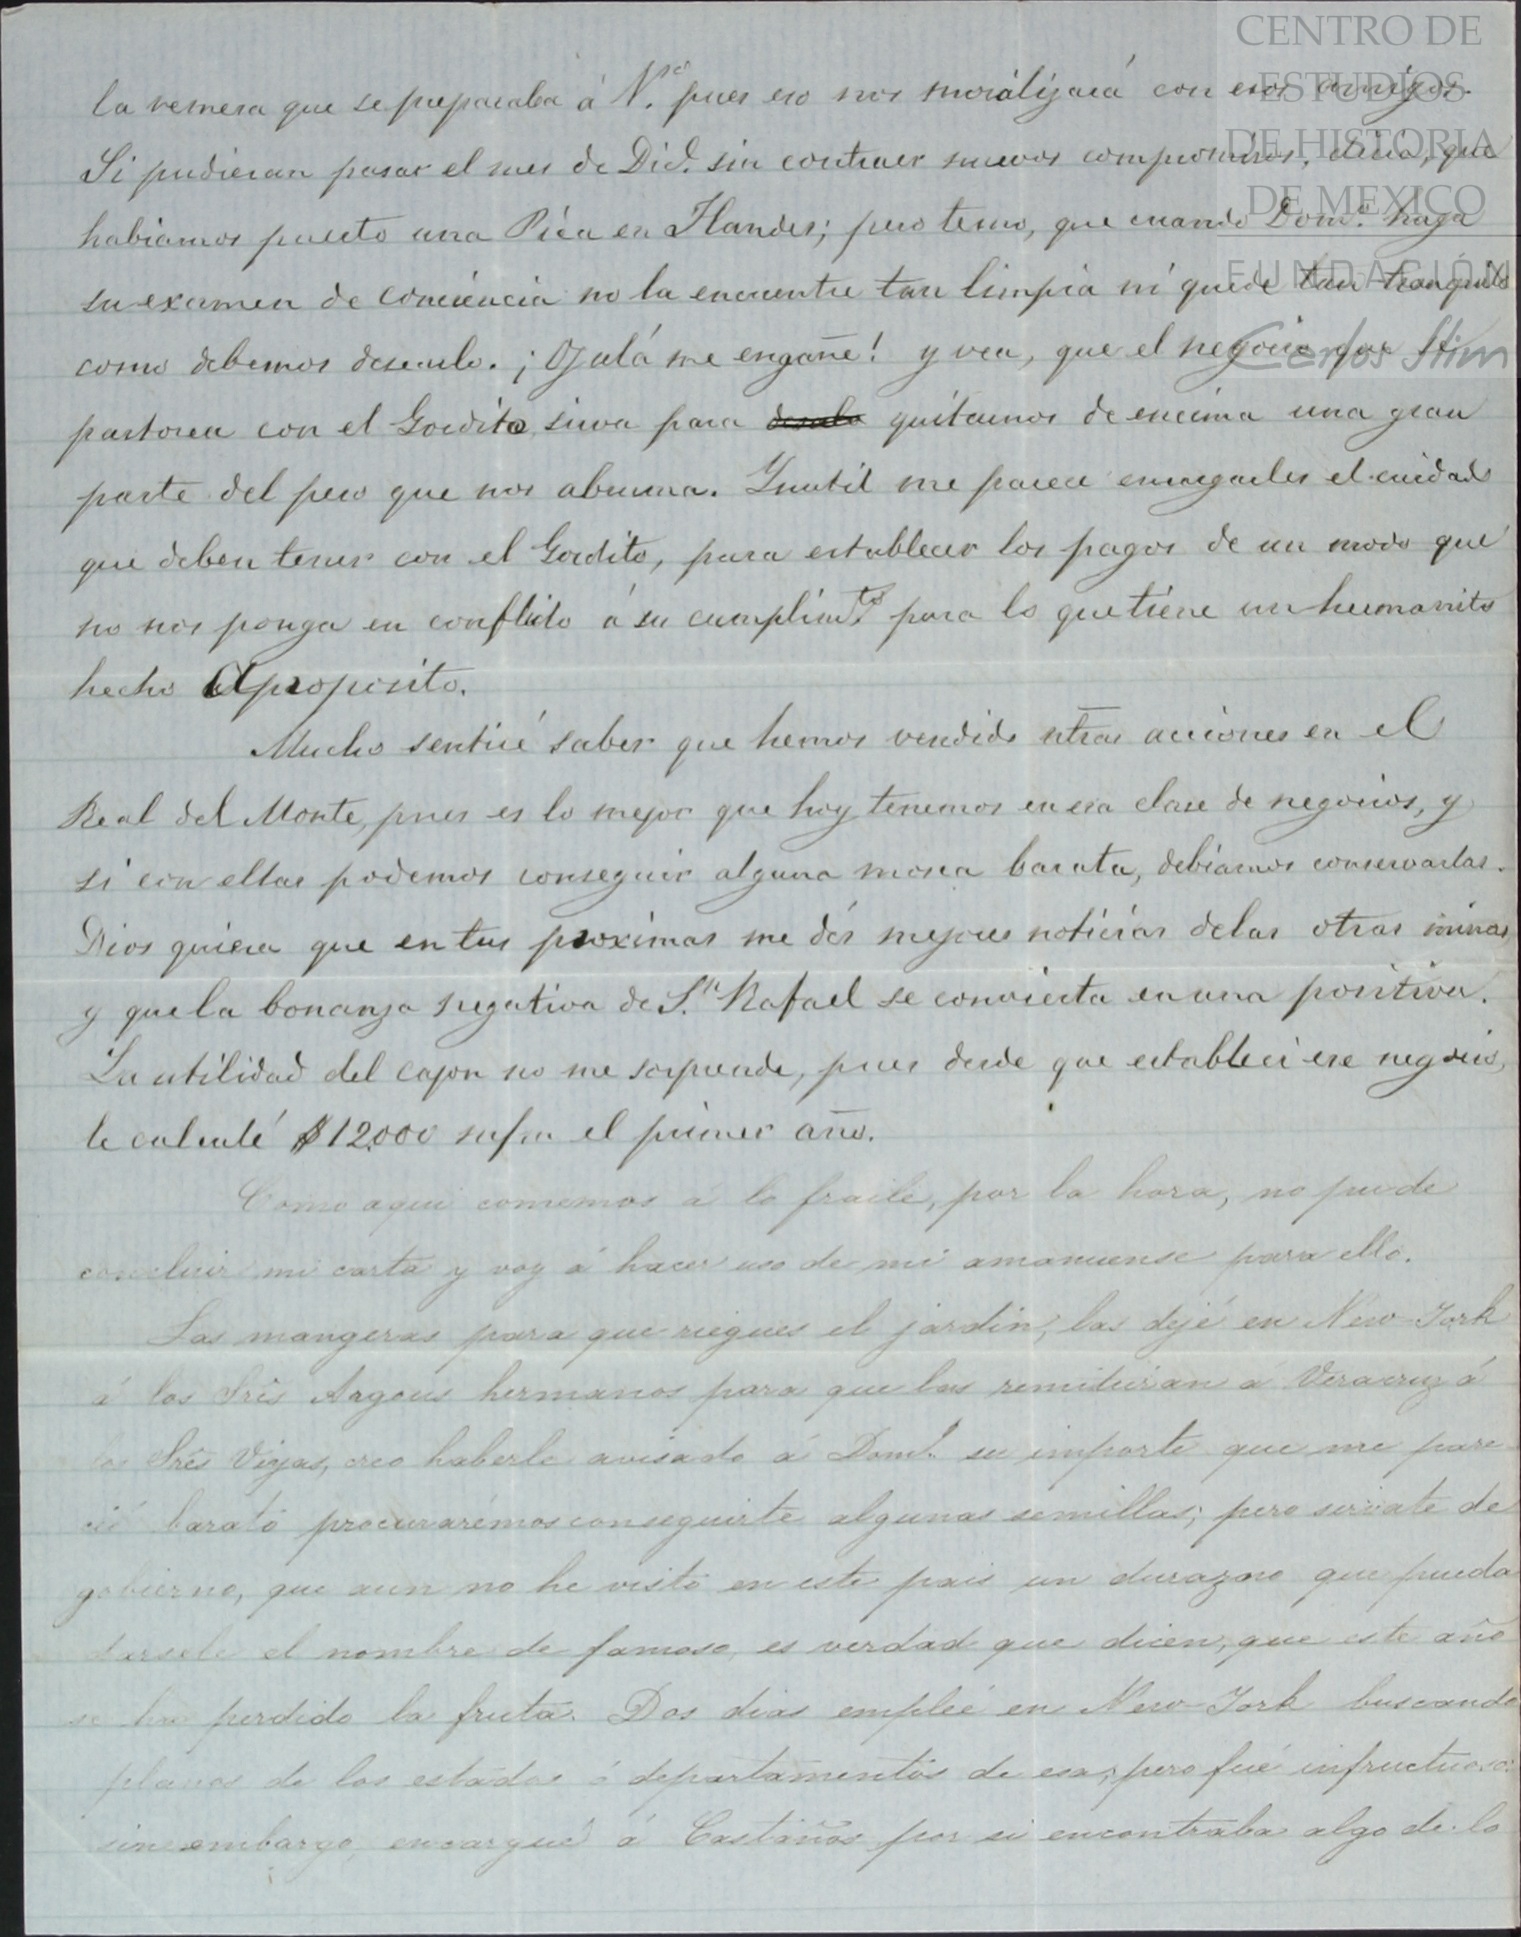 CENTRO DE
ESTUDIOS
DE HISTORIA
DE MEXICO
FUNDACIÓN
Carlos Slim
la remesa que se preparaba á N.ª pues eso nos moralizará con esos amigos.
Si pudieran pasar el mes de Dic.e sin contraer nuevos compromisos, diria, que
habiamos puesto una Pica en Flandes; pero temo, que cuando Dom.º haga
su examen de conciencia no la encuentre tan limpia ni quede tan tranquilo
como debemos desearlo. ¡Ojalá me engañe! y vea, que el negocio que se
pastorea con el Gordito sirva para quitarnos de encima una gran
parte del peso que nos abruma. Ynutil me parece encargarles el cuidado
que deben tener con el Gordito, para establecer los pagos de un modo que
no nos ponga en conflicto á su cumplim.to para lo que tiene un hermanito
hecho Apropósito.
Mucho sentiré saber que hemos vendido ntras acciones en el
Real del Monte, pues es lo mejor que hoy tenemos en esa clase de negocios, y
si con ellas podemos conseguir alguna mosca barata, debiamos conservarlas.
Dios quiera que en tus proximas me dés mejores noticias de las otras minas
y que la bonanza negativa de S.n Rafael se convierta en una positiva.
La utilidad del cajon no me sorprende, pues desde que estableci ese negocio,
le calculé $12.000 en el primer año.
Como aqui comemos á lo fraile, por la hora, no pude
concluir mi carta y voy á hacer uso de mi amanuense para ello.
Las mangeras para que riegues el jardin, las dejé en New-York
á los Srês Argous hermanos para que las remitieran á Veracruz á
los Srês Viyas, creo haberle avisado á Dom.º su importe que me pare-
ció barato procurarémos conseguirte algunas semillas; pero sirvate de
gobierno, que aun no he visto en este pais un durazno que pueda
darsele el nombre de famoso, es verdad que dicen, que este año
se ha perdido la fruta. Dos dias empleé en New-York buscando
planos de los estados ó departamentos de esa; pero fué infructuoso:
sin embargo, encargué á Castaños por si encontraba algo de lo